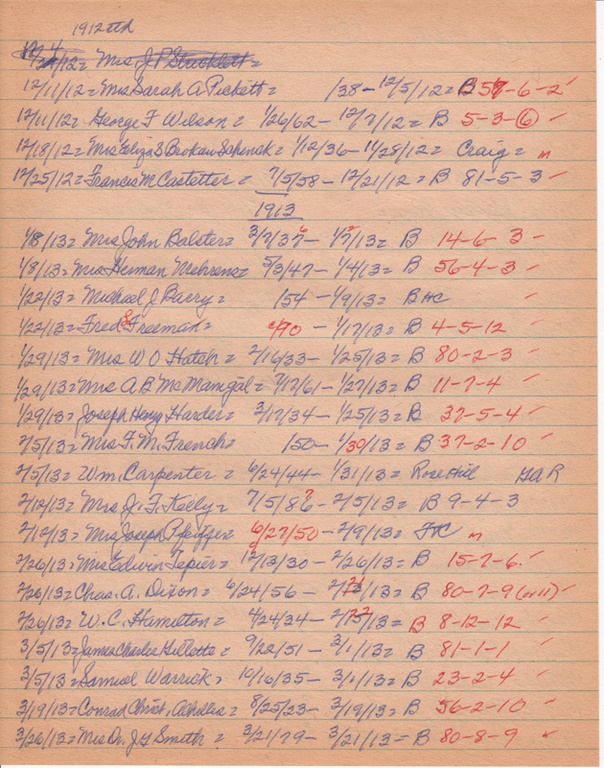 1912
12/11/12= Mrs Sarah A Pickett= /38 - 12/5/12= B 57-6-2
12/11/12= George F Wilson = 1/26/62 - 12/7/12= B 5-3-6
12/18/12= Mrs Eliza S Brokaw = 1/12/36 - 11/28/12= Craig = m
12/25/12= Francis M Castetter = 7/5/58 - 12/21/12= B 81-5-3
1913
1/8/13= Mrs John Balster= 3/7/37 - 1/7/13= B 14-6 3 -
1/8/13= Mrs Herman Mehrens= 5/3/47 - 1/4/13= B 56-4-3
1/22/13= Michael J Barry = 154 - 1/9/13= B HC
1/22/13= Fred Freeman= - 1/17/13= B 4-5-12
1/29/13= Mrs W O Hatch = 2/16/33 - 1/25/13= B 80-2-3
1/29/13= Mrs A B McManigal = 7/17/61 - 1/27/13= B 11-7-4
1/29/13= Joseph Henry Harder= 3/17/34 - 1/25/13= B 37-5-4
2/5/13= Mrs F. M. French= 150 - 1/30/13= B 37-2-10
2/5/13= Wm. Carpenter = 6/24/44 - 1/31/13= Rose Hill GAR
2/12/13= Mrs J. F. Kelly= 7/5/86? - 2/5/13= B 9-4-3
2/12/13= Mrs Joseph Pfeiffer= 6/27/50 - 2/9/13= m
2/26/13= Mrs Edwin Tapier= 12/13/30 - 2/26/13= B 15-7-6.
2/26/13= Chas. A. Dixon= 6/24/56 - B 80-7-9 (or 11)
2/26/13= W. C. Hamilton= 4/24/34 - B 8-12-12
3/5/13= James Charles Gillette= 9/22/51 - 3/1/13= B 81-1-1
3/5/13= Samuel Warrick= 10/16/35 - 3/1/13= B 23-2-4
3/19/13= Conrad Christ. = 8/25/23 - 3/19/13= B 56-2-10
3/26/13= Mrs Dr. J G Smith = 3/21/79 - 3/21/13= B 80-8-9